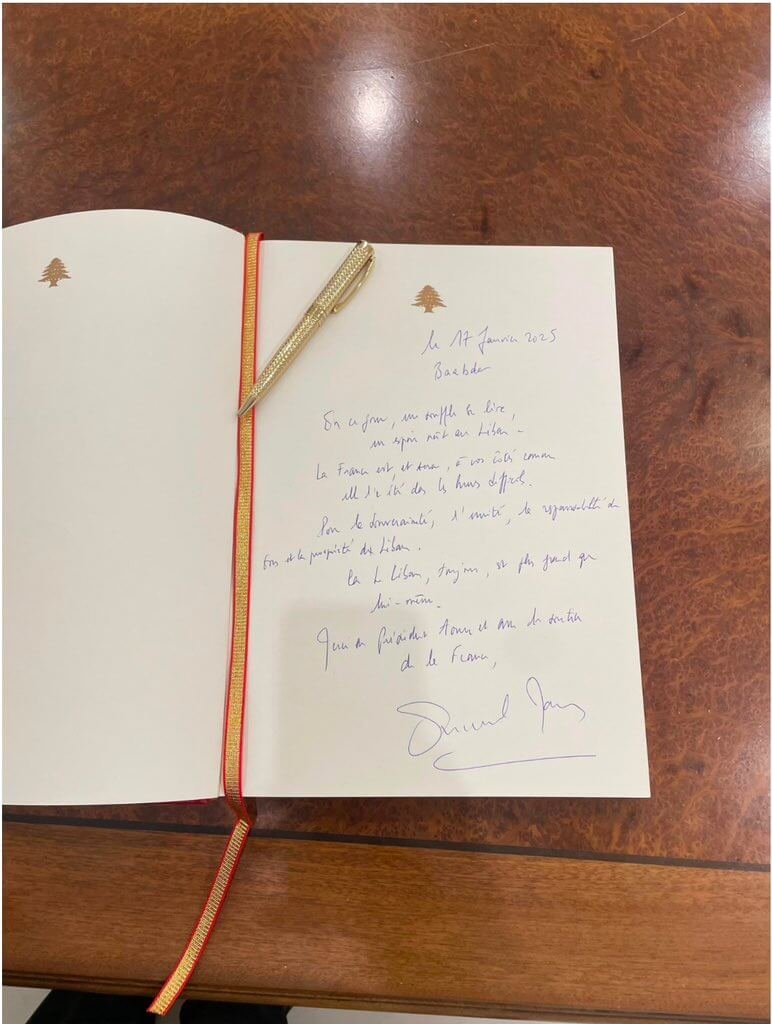 le 17 Janvier 2025
Baabda
En ce jour, un souffle se lève,
un espoir naît au Liban.
La France est, et sera, à vos côtés comme
elle l'a été dans les heures difficiles.
Pour la souveraineté, l'unité, la responsabilité de
tous et la prospérité du Liban.
Car le Liban, toujours, est plus grand que
lui-même.
Président Aoun et du soutien
de la France,